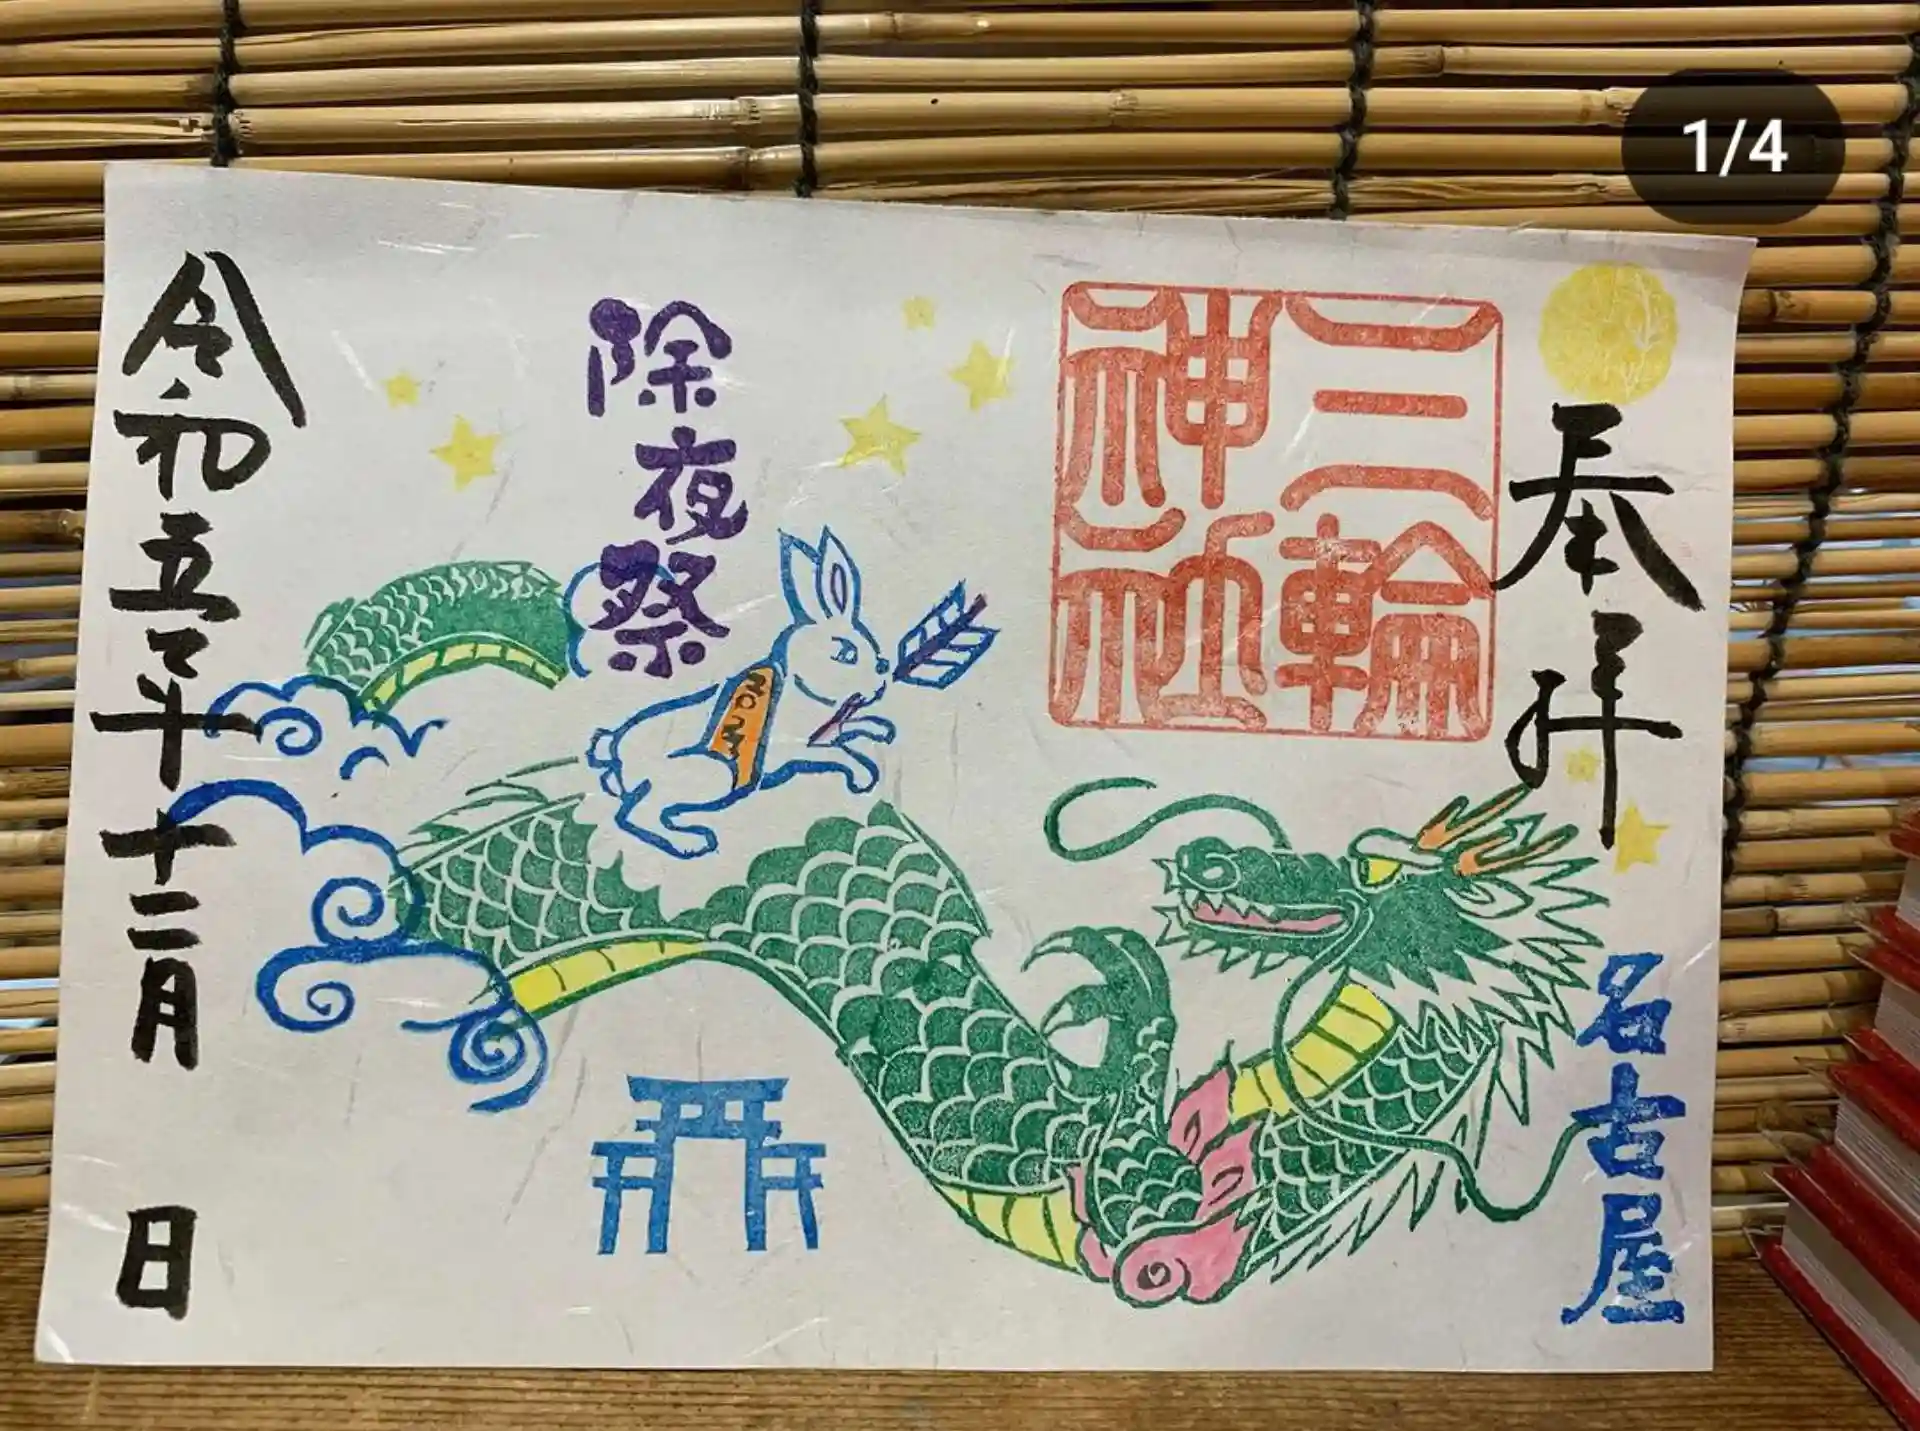 1/4
奉拝
三輪
神社
名古屋
除夜祭
令和五年十二月 日